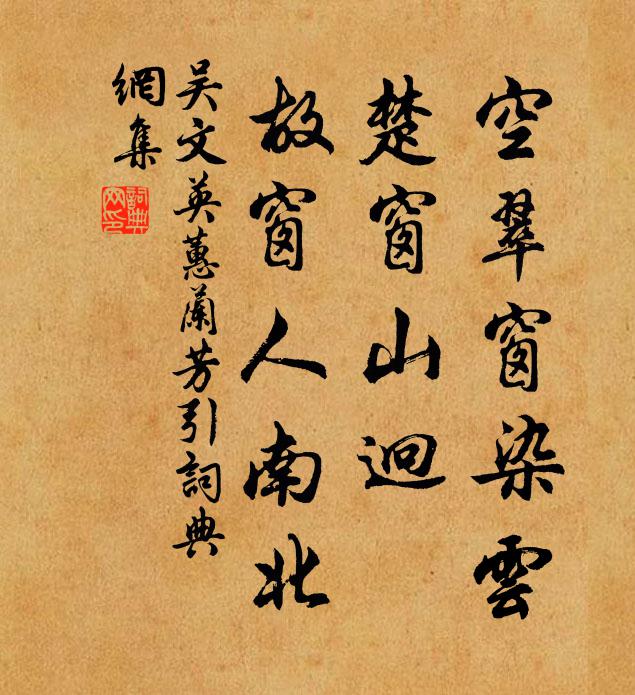 空翠窗染雲
楚窗山迥
故窗人南北
吳文英蕙蘭芳引詞典
網集
詞典
网印